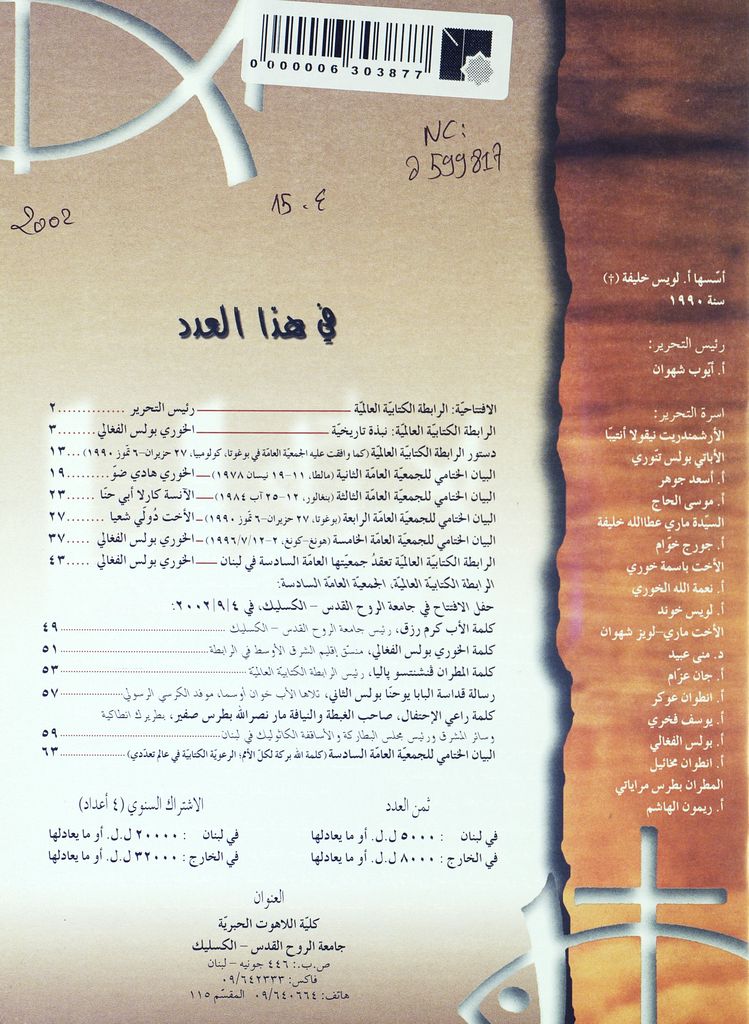 0 000006 303877
NC:
a 599817
2002
15.4
في هذا العدد
الافتتاحيّة: الرابطة الكتابيّة العالميّة ــــ رئيس التحرير ........ ٢
الرابطة الكتابيّة العالميّة: نبذة تاريخيّة ــــ الخوري بولس الفغالي ..... ٣
دستور الرابطة الكتابيّة العالميّة (كما وافقت عليه الجمعيّة العامّة في بوغوتا، كولومبيا، ٢٧ حزيران-٦ تمّوز ١٩٩٠) .... ١٣
البيان الختامي للجمعيّة العامّة الثانية (مالطا، ١١-١٩ نيسان ١٩٧٨) ــــ الخوري هادي ضوّ ..... ١٩
البيان الختامي للجمعيّة العامّة الثالثة (بنغالور، ١٢-٢٥ آب ١٩٨٤) ــــ الآنسة كارلا أبي حنّا ..... ٢٣
البيان الختامي للجمعيّة العامّة الرابعة (بوغوتا، ٢٧ حزيران-٦ تمّوز ١٩٩٠) ــــ الأخت دُولّي شعيا ..... ٢٧
البيان الختامي للجمعيّة العامّة الخامسة (هونغ-كونغ، ٢-١٢/٧/١٩٩٦) ــــ الخوري بولس الفغالي ..... ٣٧
الرابطة الكتابيّة العالميّة تعقدُ جمعيّتها العامّة السادسة في لبنان ــــ الخوري بولس الفغالي ..... ٤٣
الرابطة الكتابيّة العالميّة، الجمعيّة العامّة السادسة:
حفل الافتتاح في جامعة الروح القدس – الكسليك، في ٤|٩|٢٠٠٢:
كلمة الأب كرم رزق، رئيس جامعة الروح القدس – الكسليك ........ ٤٩
كلمة الخوري بولس الفغالي، منسّق إقليم الشرق الأوسط في الرابطة ........ ٥١
كلمة المطران فنشنتسو پاليا، رئيس الرابطة الكتابيّة العالميّة ........ ٥٣
رسالة قداسة البابا يوحنّا بولس الثاني، تلاها الأب خوان أوسما، موفد الكرسي الرسولي ........ ٥٧
كلمة راعي الإحتفال، صاحب الغبطة والنيافة مار نصرالله بطرس صفير، بطريرك انطاكية
وسائر المشرق ورئيس مجلس البطاركة والأساقفة الكاثوليك في لبنان ........ ٥٩
البيان الختامي للجمعيّة العامّة السادسة (كلمة الله بركة لكلّ الأمم؛ الرعويّة الكتابيّة في عالم تعدّدي) ........ ٦٣
ثمن العدد
في لبنان : ٥٠٠٠ ل.ل. أو ما يعادلها
في الخارج : ٨٠٠٠ ل.ل. أو ما يعادلها
الاشتراك السنوي (٤ أعداد)
في لبنان : ٢٠٠٠٠ ل.ل. أو ما يعادلها
في الخارج : ٣٢٠٠٠ ل.ل. أو ما يعادلها
العنوان
كليّة اللاهوت الحبريّة
جامعة الروح القدس – الكسليك
ص.ب.: ٤٤٦ جونيه – لبنان
فاكس: ٠٩/٦٤٢٣٣٣
هاتف: ٠٩/٦٤٠٦٦٤ المقسّم ١١٥
أسّسها أ. لويس خليفة (†)
سنة ١٩٩٠
رئيس التحرير:
أ. أيّوب شهوان
اسرة التحرير:
الأرشمندريت نيقولا أنتيبّا
الأباتي بولس تنّوري
أ. أسعد جوهر
أ. موسى الحاج
السيّدة ماري عطاالله خليفة
أ. جورج خوّام
الأخت باسمة خوري
أ. نعمة الله الخوري
أ. لويس خوند
الأخت ماري-لويز شهوان
د. منى عبيد
أ. جان عزّام
أ. انطوان عوكر
أ. يوسف فخري
أ. بولس الفغالي
أ. انطوان مخائيل
المطران بطرس مراياتي
أ. ريمون الهاشم